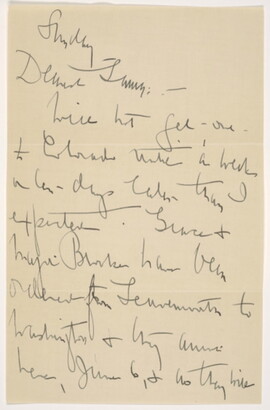 Sunday
Dearest Fanny: —
Will not get – one –
to Colorado until a week
or ten – days later than I
expected. Grace &
Major Booker have been
ordered from Leavenworth to
Washington & they arrive
here, June 6, & as they will